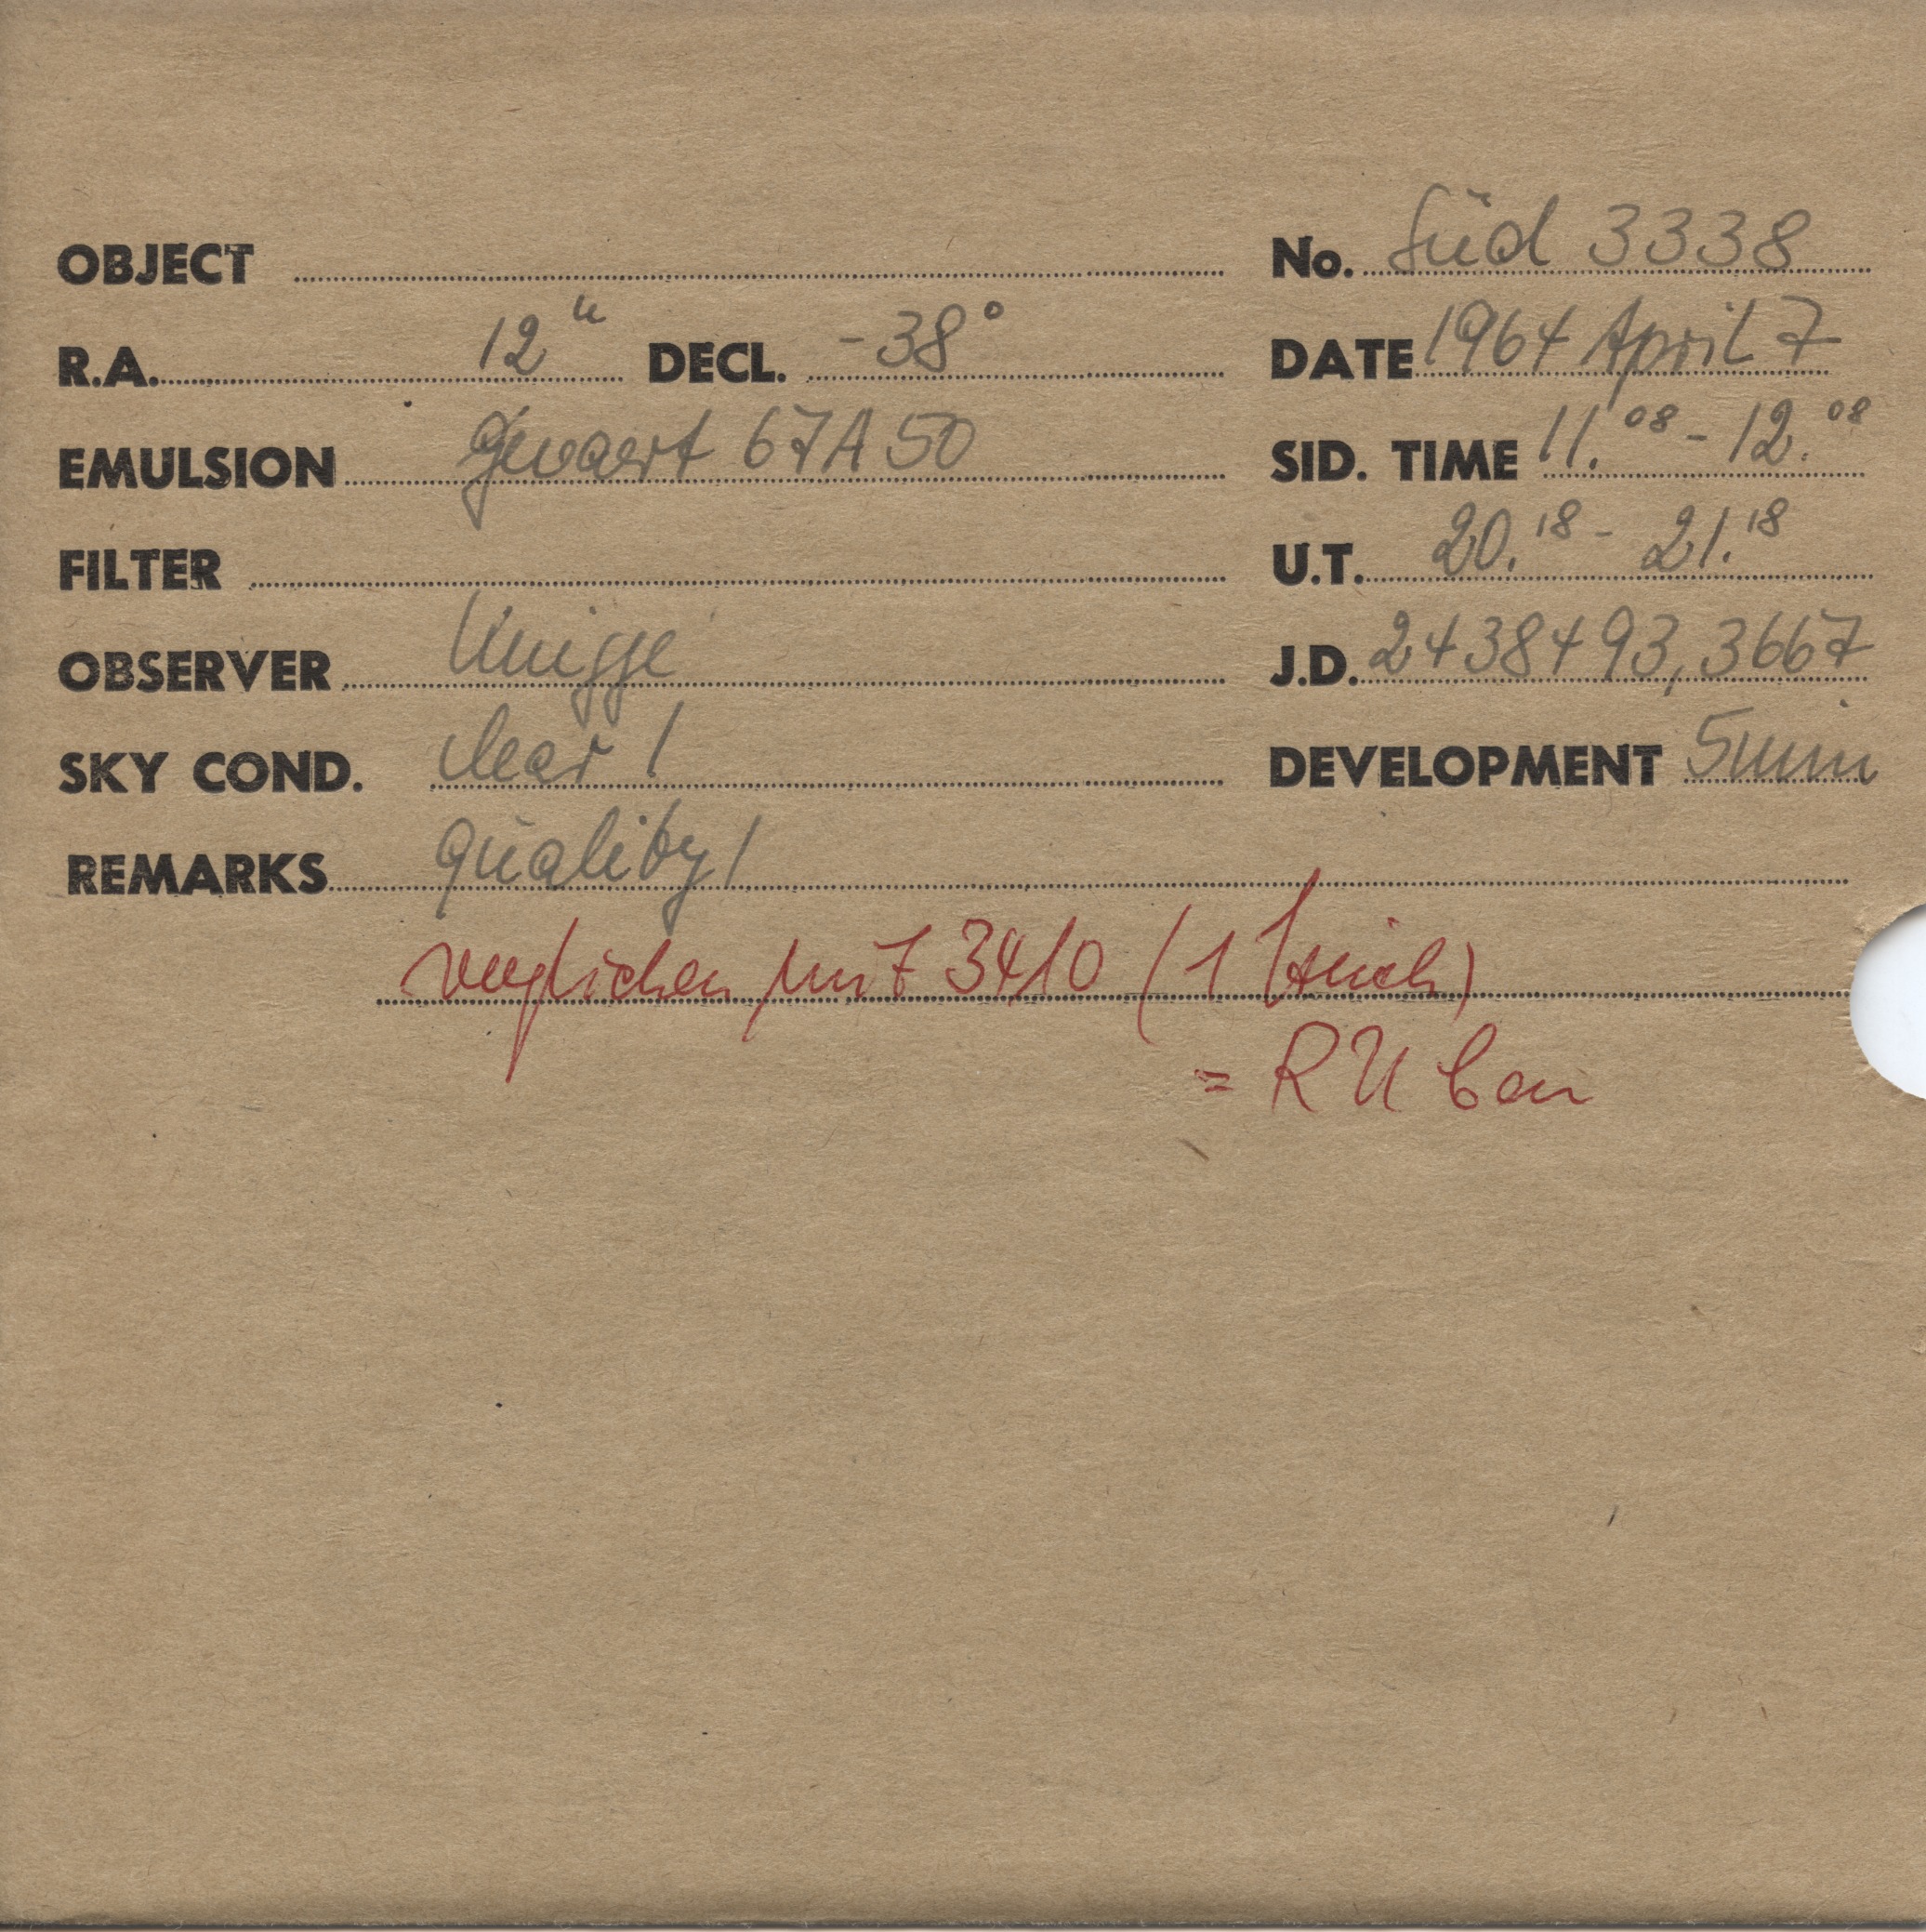 OBJECT No. Süd 3338
R.A. 12h DECL. -38° DATE 1964 April 7
EMULSION Gevaert 67A50 SID. TIME 11.08 - 12.08
FILTER U.T. 20.18 - 21.18
OBSERVER Knigge J.D. 2438493,3667
SKY COND. clear 1 DEVELOPMENT 5min
REMARKS quality 1
verglichen mit 3410 (1 Strich)
= RU Cen